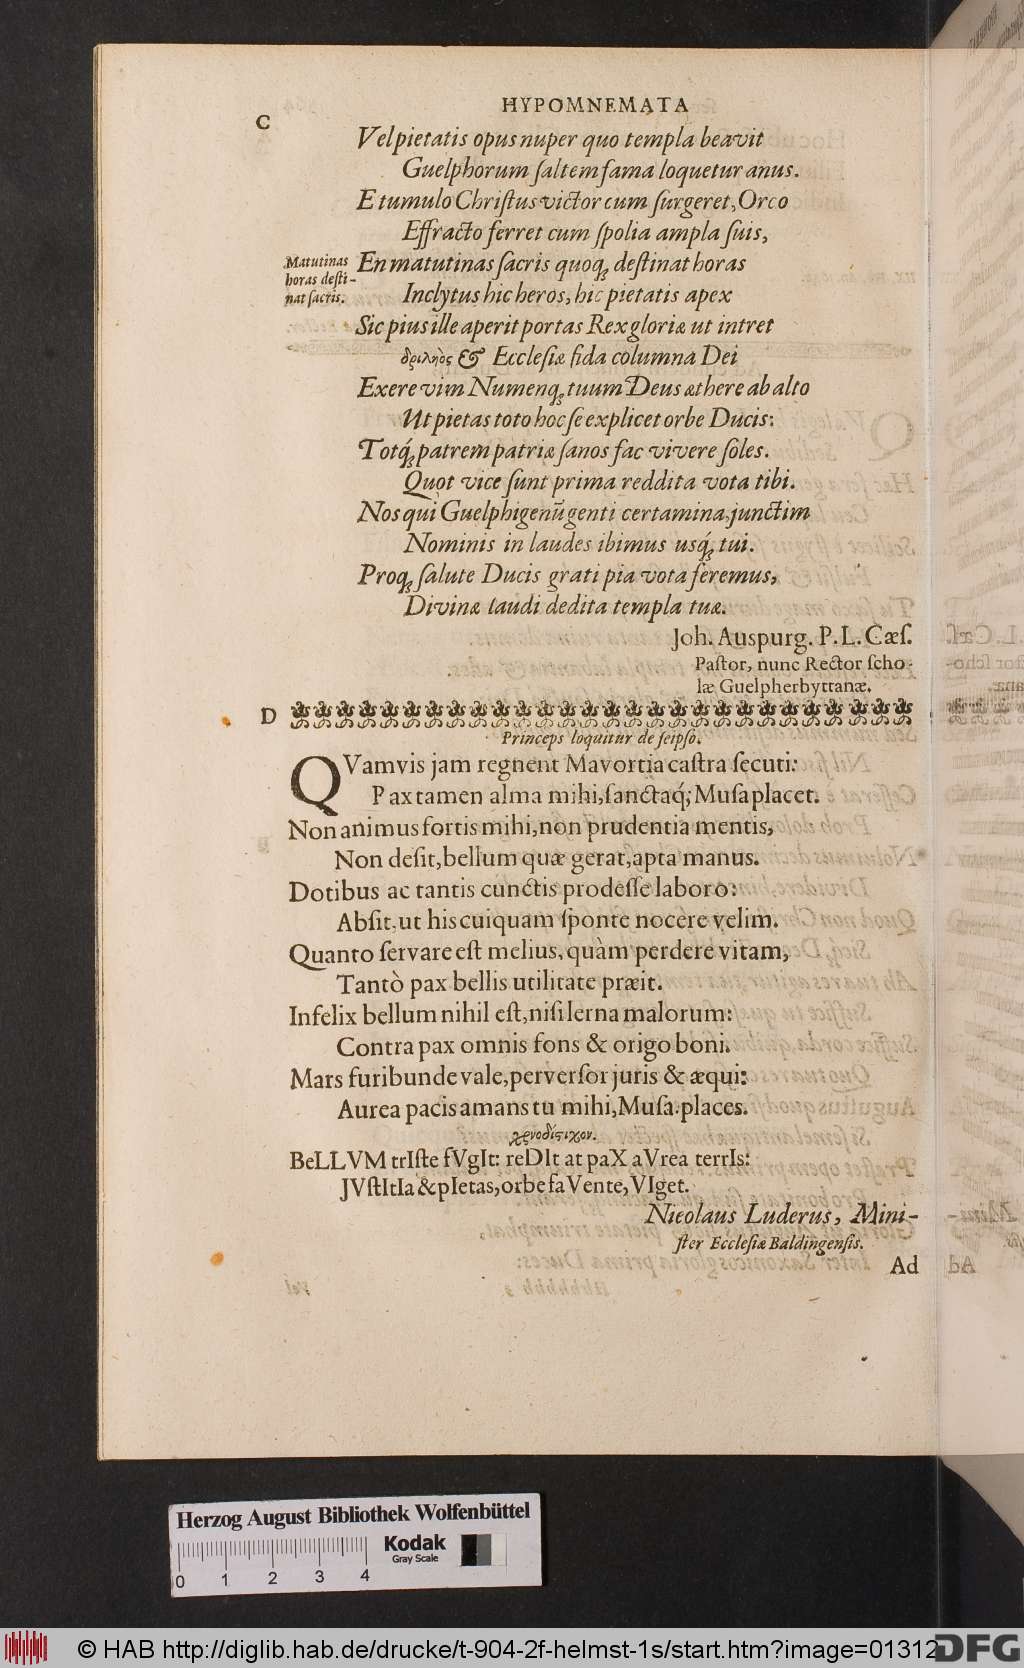 HYPOMNEMATA
C
Vel pietatis opus nuper quo templa beavit
Guelphorum ſaltem fama loquetur anus.
E tumulo Chriſtus victor cum ſurgeret, Orco
Effracto ferret cum ſpolia ampla ſuis,
Matutinas
horas deſti-
nat ſacris.
En matutinas ſacris quoq; deſtinat horas
Inclytus hic heros, hic pietatis apex
Sic pius ille aperit portas Rex gloriæ ut intret
& Eccleſiæ fida columna Dei
Exere vim Numenq; tuum Deus æthere ab alto
Ut pietas toto hoc ſe explicet orbe Ducis:
Totq́; patrem patriæ ſanos fac vivere ſoles.
Quot vice ſunt prima reddita vota tibi.
Nos qui Guelphigenũ genti certamina, junctim
Nominis in laudes ibimus usq́; tui.
Proq; ſalute Ducis grati pia vota feremus,
Divinæ laudi dedita templa tuæ.
Joh. Auspurg. P. L. Cæſ.
Paſtor, nunc Rector ſcho-
læ Guelpherbyttanæ.
D
Princeps loquitur de ſeipſo.
QVamvis jam regnent Mavortia caſtra ſecuti:
Pax tamen alma mihi, ſanctaq́; Muſa placet.
Non animus fortis mihi, non prudentia mentis,
Non deſit, bellum quæ gerat, apta manus.
Dotibus ac tantis cunctis prodeſſe laboro:
Abſit, ut his cuiquam ſponte nocere velim.
Quanto ſervare eſt melius, quàm perdere vitam,
Tantò pax bellis utilitate præit.
Infelix bellum nihil eſt, niſi lerna malorum:
Contra pax omnis fons & origo boni.
Mars furibunde vale, perverſor juris & æqui:
Aurea pacis amans tu mihi, Muſa. places.
BeLLVM trIſte fVgIt: reDIt at paX aVrea terrIs:
JVſtItIa & pIetas, orbe faVente, VIget.
Nicolaus Luderus, Mini-
ſter Eccleſiæ Baldingenſis.
Ad
Herzog August Bibliothek Wolfenbüttel
Kodak
Gray Scale
0 1 2 3 4
© HAB http://diglib.hab.de/drucke/t-904-2f-helmst-1s/start.htm?image=01312
DFG